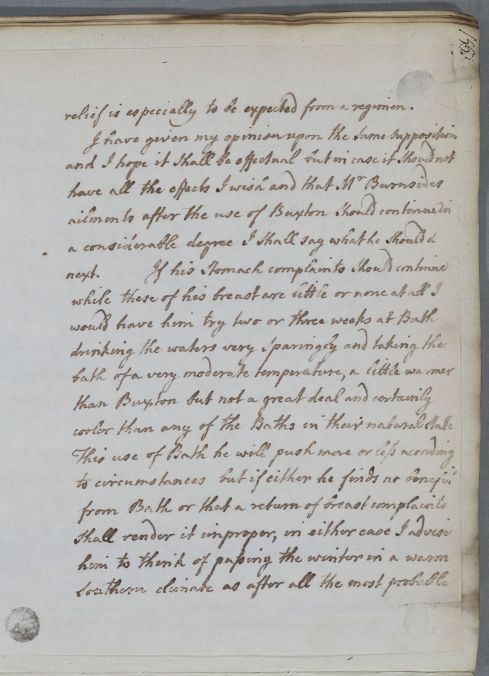 relief is especially to be expected from a regimen.
I have given my opinion upon the same supposition
and I hope it shall be effectual but in case it should not
have all the effects I wish and that Mr Burnsides
ailments after the use of Buxton should continue in
a considerable degree I shall say what he should d
next. If his Stomach complaints should continue
while these of his breast are little or none at all I
would have him try two or three weeks at Bath
drinking the waters very sparingly and taking the
bath of a very moderate temperature, a little warmer
than Buxton but not a great deal and certainly
cooler than any of the Baths in their natural state
This use of Bath he will push more or less acording
to circumstances but if either he finds no benefit
from Bath or that a return of breast complaints
shall render it improper, in either case I advise
him to think of passing the winter in a warm
Southern climate as after all the most probable